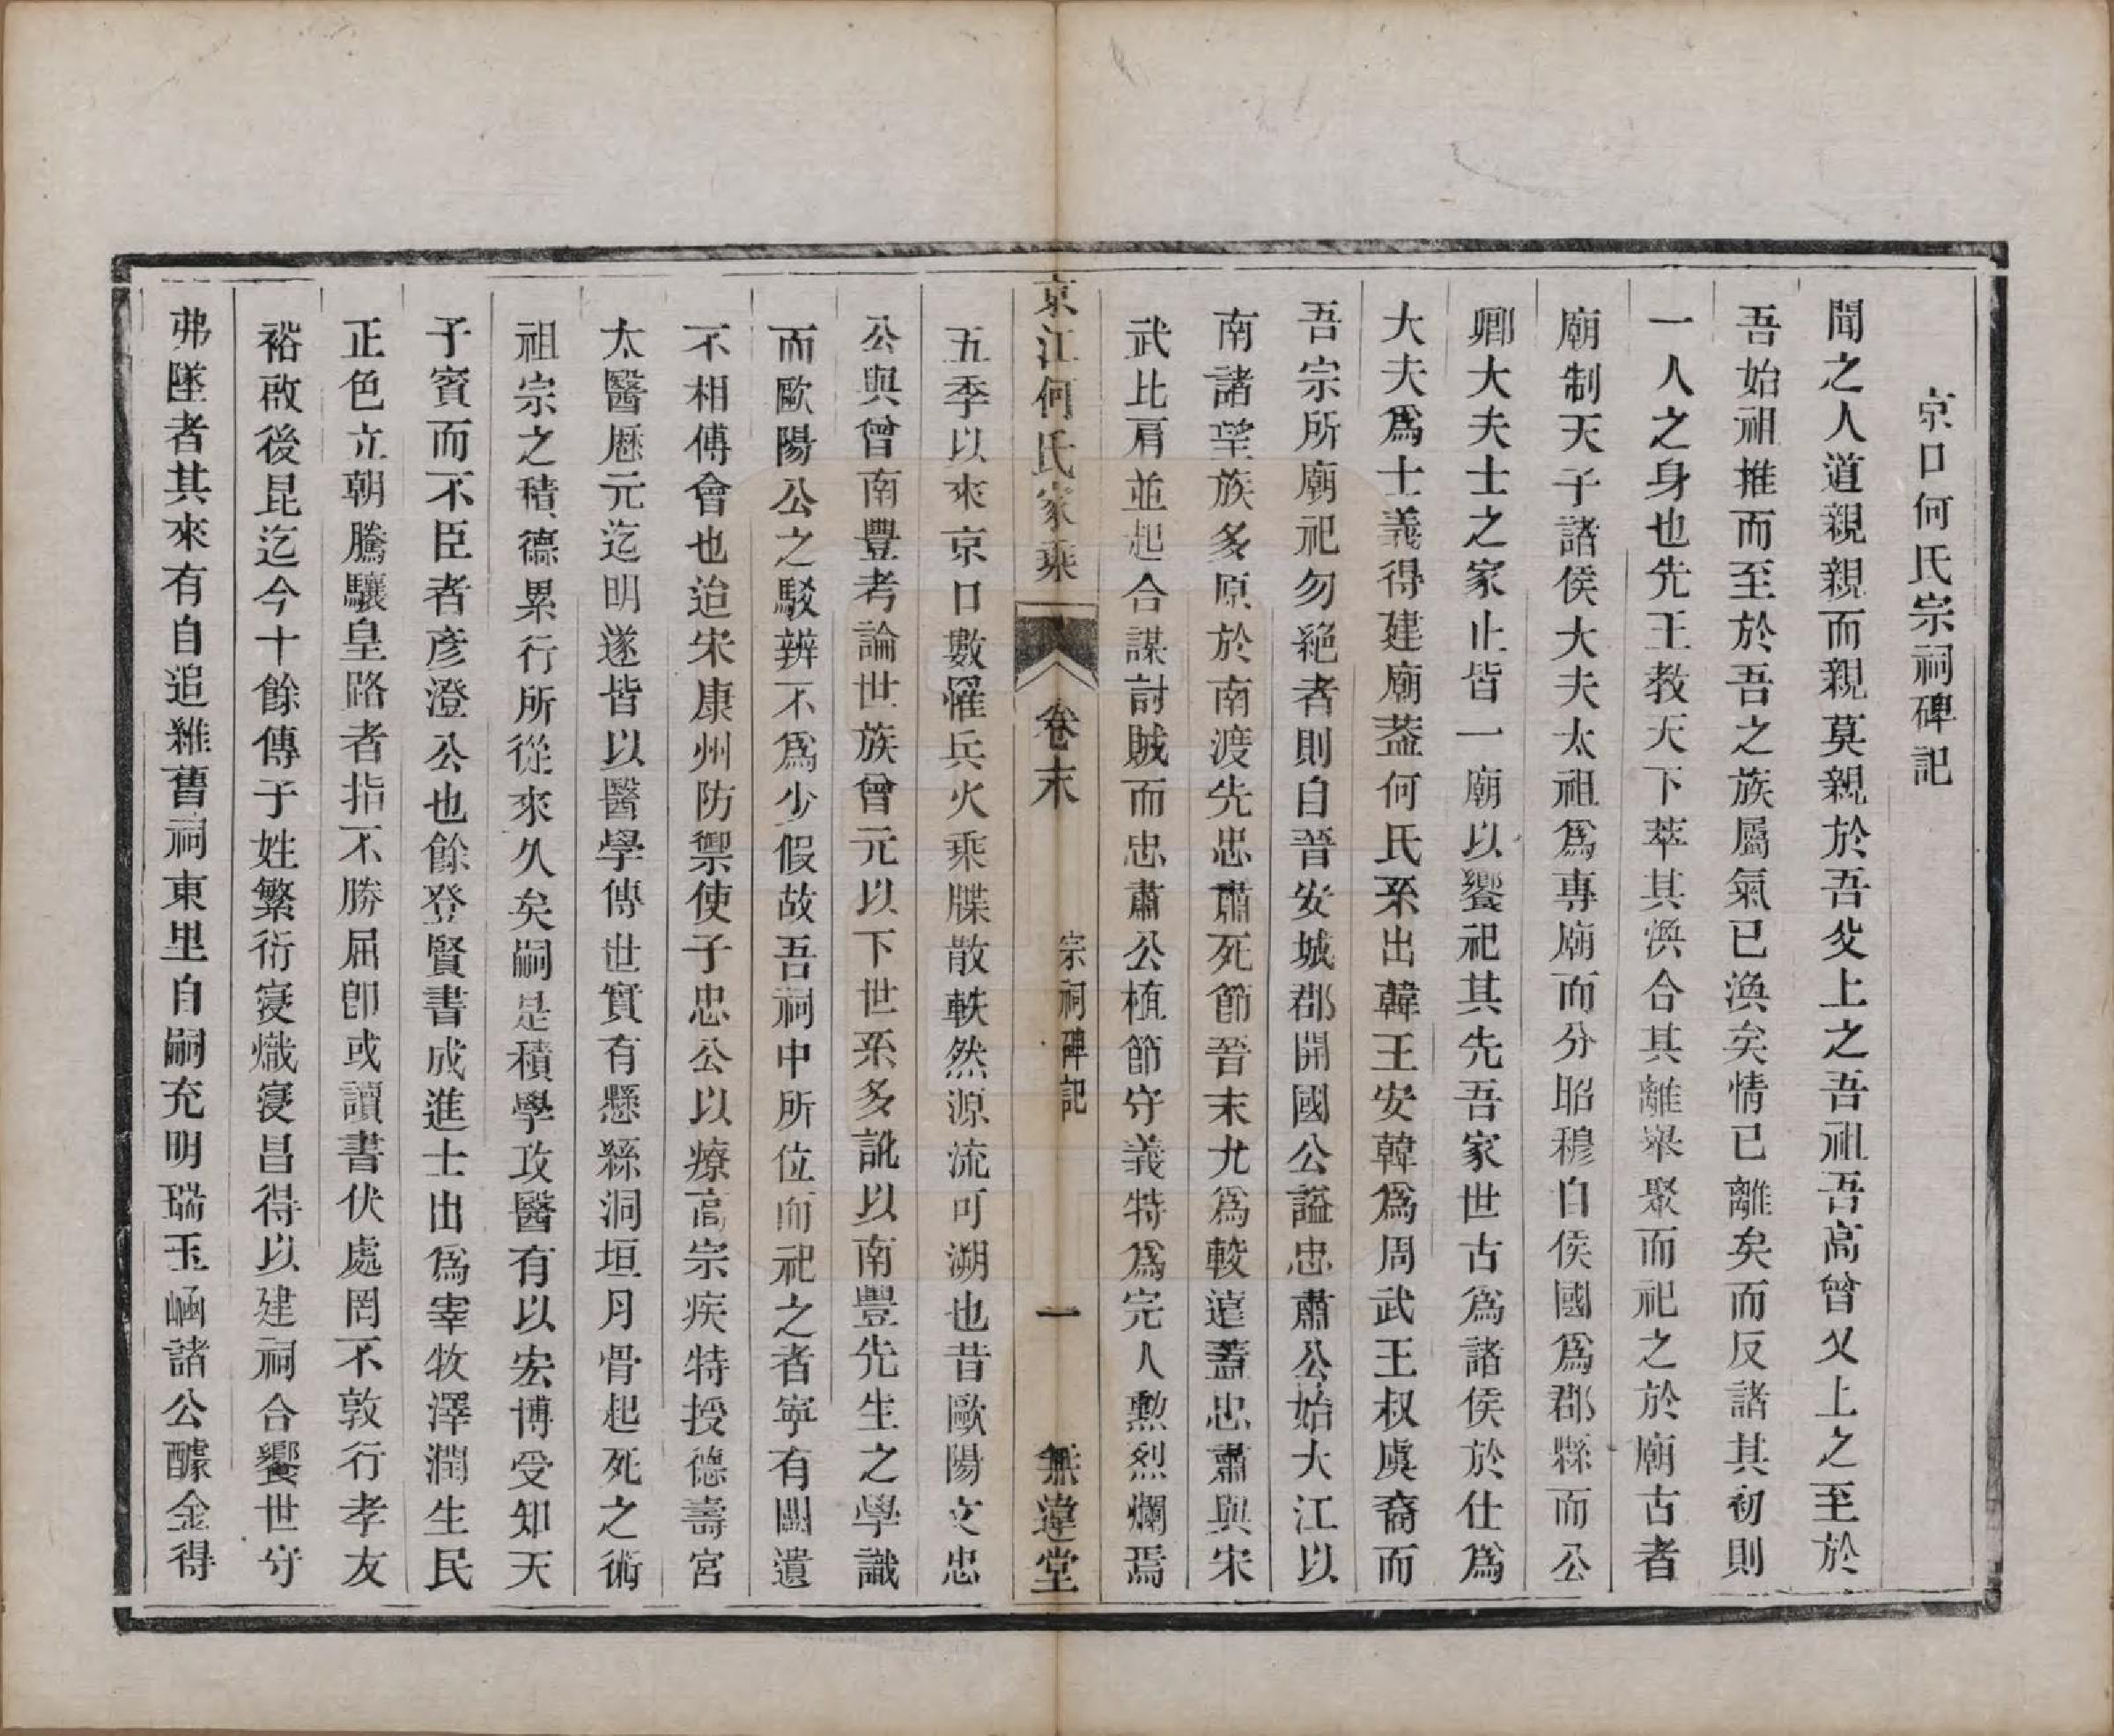 京口何氏宗祠碑記
聞之人道親親而親莫親於吾父上之吾祖吾高曾又上之至於
吾始祖推而至於吾之族屬氣已渙矣情已離矣而反諸其初則
一人之身也先王教天下萃其渙合其離畢聚而祀之於廟古者
廟制天子諸侯大夫太祖爲專廟而分昭穆自侯國爲郡縣而公
卿大夫士之家止皆一廟以饗祀其先吾家世古爲諸侯於仕爲
大夫爲士義得建廟葢何氏系出韓王安韓爲周武王叔虞裔而
吾宗所廟祀勿絕者則自晉安城郡開國公謚忠肅公始大江以
南諸望族多原於南渡先忠肅死節晉末尤爲較遠蓋忠肅與宋
武比肩並起合謀討賊而忠肅公植節守義特爲完人勲烈爛焉
京江何氏家乘 卷末 宗祠碑記 一 無違堂
五季以來京口數罹兵火乘牒散軼然源流可溯也昔歐陽文忠
公與曾南豐考論世族曾元以下世系多訛以南豐先生之學識
而歐陽公之駁辨不爲少假故吾祠中所位而祀之者寧有闕遺
不相傅會也迨宋康州防禦使子忠公以療高宗疾特授德壽宮
太醫歷元迄明遂皆以醫學傳世實有懸絲洞垣月骨起死之術
祖宗之積德累行所從來久矣嗣是積學攻醫有以宏博受知天
子賓而不臣者彥澄公也餘登賢書成進士出爲宰牧澤潤生民
正色立朝騰驤皇路者指不勝屈卽或讀書伏處罔不敦行孝友
裕啟後昆迄今十餘傳子姓繁衍寖熾寖昌得以建祠合饗世守
弗墜者其來有自追維舊祠東里自嗣充明瑞玉崡諸公醵金得